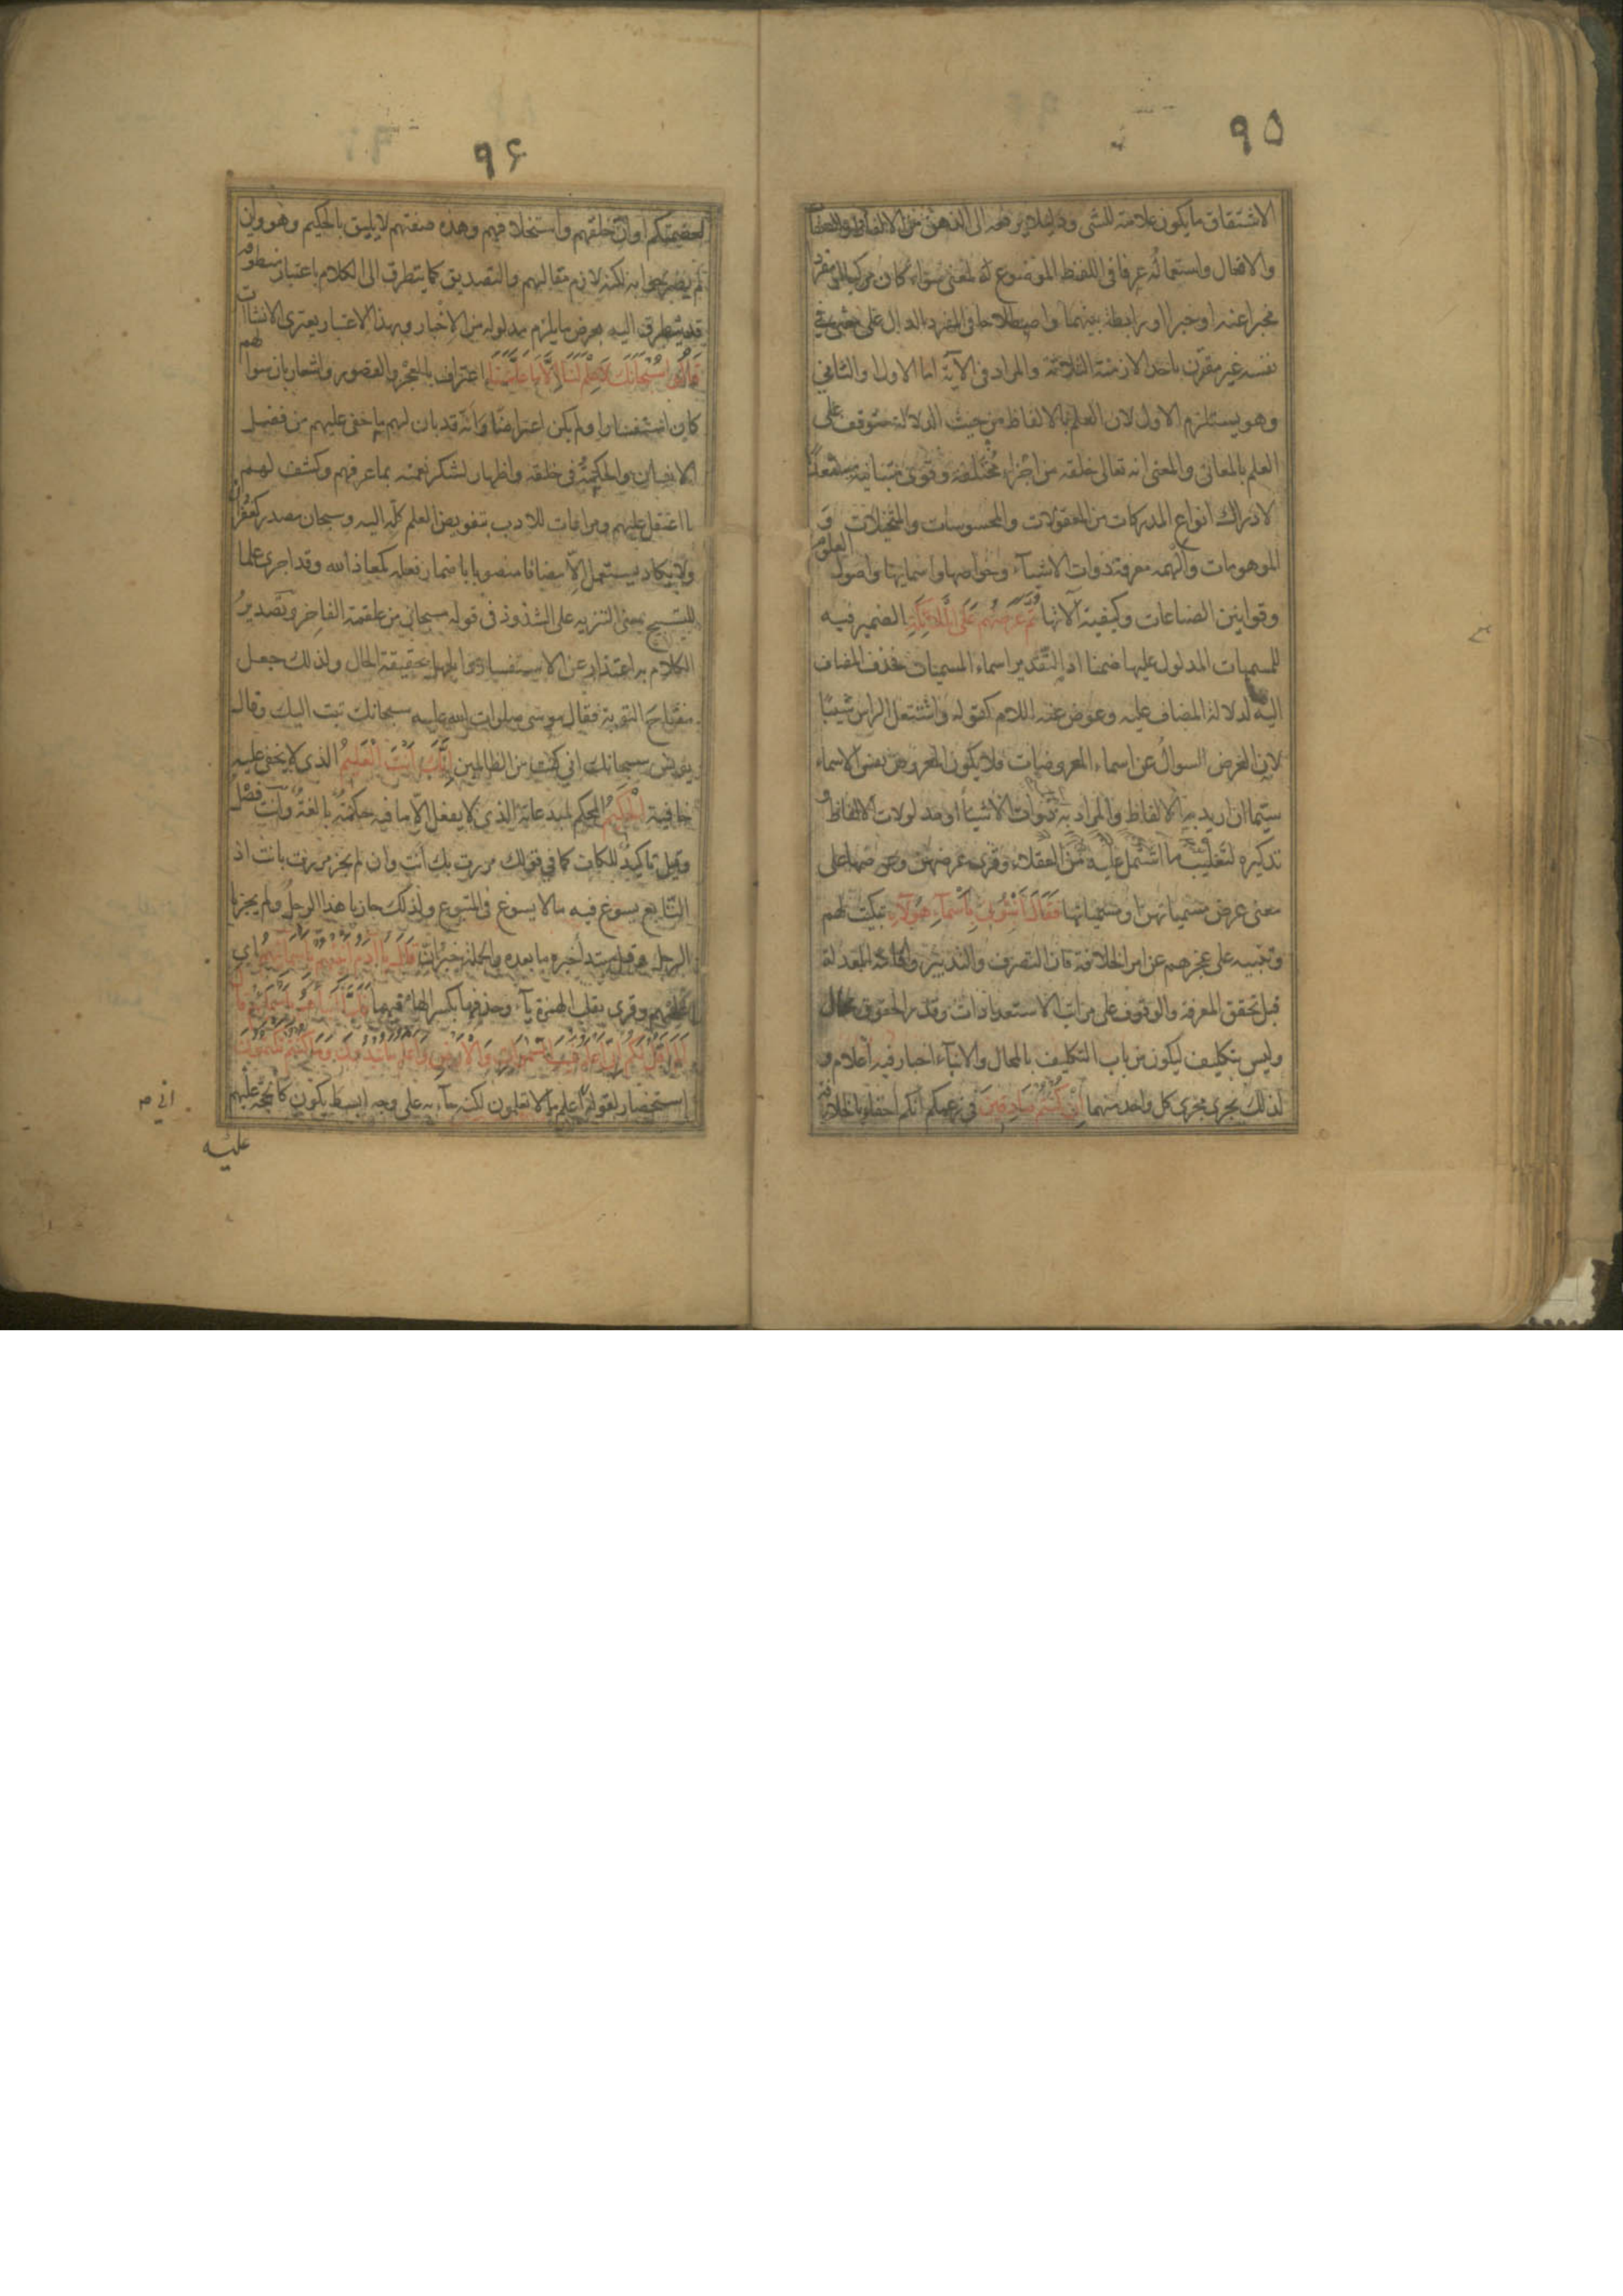 ٩٥
الاشتقاق ما يكون علامة للشى ودليلا يرفعه الى الذهن من الالفاظ والصفات
والافعال واستعماله عرفا فى اللفظ الموضوع لمعنى سواء كان مركبا او مفردا
مخبرا عنه او خبرا او رابطة بينهما واصطلاحا فى المفرد الدال على معنى فى
نفسه غير مقترن باحد الازمنة الثلاثة والمراد فى الآية اما الاول او الثانى
وهو يستلزم الاول لان العلم بالالفاظ من حيث الدلالة متوقف على
العلم بالمعانى والمعنى انه تعالى خلقه من اجزاء مختلفة وقوى متباينة مستعدا
لادراك انواع المدركات من المعقولات والمحسوسات والمتخيلات و
الموهومات والهمه معرفة ذوات الاشياء وخواصها واسمائها واصول العلوم
وقوانين الصناعات وكيفية آلاتها ثم عرضهم على الملائكة الضمير فيه
للمسميات المدلول عليها ضمنا اذ التقدير اسماء المسميات فحذف المضاف
اليه لدلالة المضاف عليه وعوض عنه اللام كقوله واشتعل الراس شيبا
لان الغرض السوال عن اسماء المعروضات فلا يكون المعروض نفس الاسماء
سيما ان اريد به الالفاظ والمراد به ذوات الاشياء او مدلولات الالفاظ و
تذكيره لتغليب ما اشتمل عليه من العقلاء وقرى عرضهن وعرضها على
معنى عرض مسمياتهن او مسمياتها فقال انبئونى باسماء هؤلاء تبكيت لهم
وتنبيه على عجزهم عن امر الخلافة فان التصرف والتدبير واقامة المعدلة
قبل تحقق المعرفة والوقوف على مراتب الاستعدادات وقدر الحقوق محال
وليس بتكليف ليكون من باب التكليف بالمحال والانباء اخبار فيه اعلام و
لذلك يجرى مجرى كل واحد منهما ان كنتم صادقين فى زعمكم انكم احقاء بالخلافة
٩۶
لعصمتكم او ان خلقهم واستخلافهم وهذه صفتهم لا يليق بالحكيم وهو وان
لم يصرحوا به لكنه لازم مقالهم والتصديق كما يتطرق الى الكلام باعتبار منطوقه
قد يتطرق اليه بعرض ما يلزم مدلوله من الاخبار وبهذا الاعتبار يعترى الانشاآت
قالوا سبحانك لا علم لنا الا ما علمتنا اعتراف بالعجز والقصور واشعار بان سوالهم
كان استفسارا ولم يكن اعتراضا وانه قد بان لهم ما خفى عليهم من فضل
الانسان والحكمة فى خلقه واظهار لشكر نعمته بما عرفهم وكشف لهم
ما اعتقل عليهم ومراعات للادب بتفويض العلم كله اليه وسبحان مصدر كغفران
ولا يكاد يستعمل الا مضافا منصوبا باضمار فعله كمعاذ الله وقد اجرى علما
للتسبيح بمعنى التنزيه على الشذوذ فى قوله سبحان من علقمة الفاخر وتصدير
الكلام به اعتذار عن الاستفسار والجهل بحقيقة الحال ولذلك جعل
مفتاح التوبة فقال موسى صلوات الله عليه سبحانك تبت اليك وقال
يونس سبحانك انى كنت من الظالمين انك انت العليم الذى لا يخفى عليه
خافية الحكيم المحكم لمبدعاته الذى لا يفعل الا ما فيه حكمة بالغة وانت فصل
وقيل تاكيد للكاف كما فى قولك مررت بك انت وان لم يجز مررت بانت اذ
التابع يسوغ فيه ما لا يسوغ فى المتبوع ولذلك جاز يا هذا الرجل ولم يجز يا
الرجل وقيل مبتدأ خبره ما بعده والجملة خبر ان قال يا آدم انبئهم باسمائهم اى
اعلمهم وقرى بقلب الهمزة ياء وحذفها بكسر الهاء فيهما فلما انبأهم باسمائهم قال
الم اقل لكم انى اعلم غيب السموات والارض واعلم ما تبدون وما كنتم تكتمون
استحضار لقوله اعلم ما لا تعلمون لكنه جاء به على وجه ابسط ليكون كالحجة عليهم
انى م
عليه